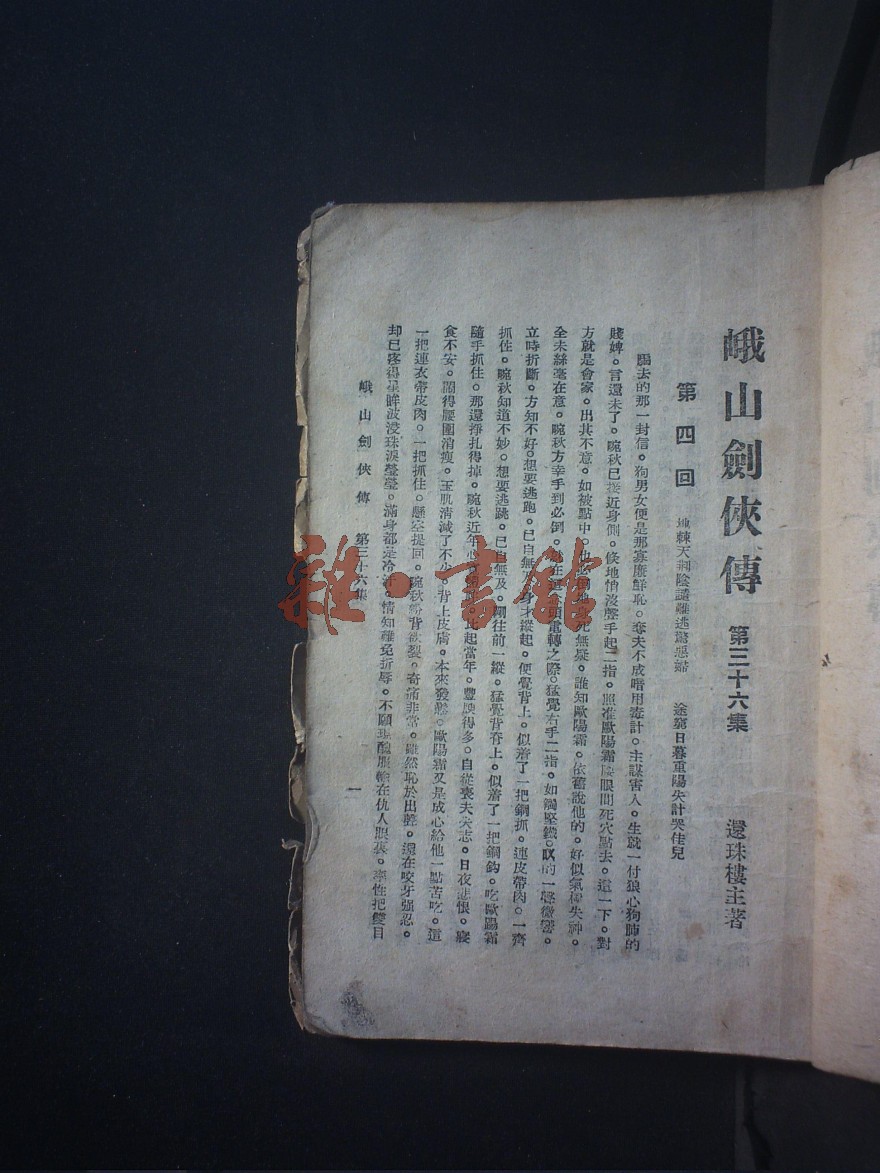 峨山劍俠傳 第三十六集 還珠樓主著
第四回 地棘天荆陰謀難逃驚惡 途窮日暮重陽失計哭佳兒
賜去的那一封信。狗男女便是那寡廉鮮恥。奪夫不成暗用毒計。主謀害人。生就一付狼心狗肺的
賤婢。言還未了。畹秋已挨近身側。倏地悄沒聲手起二指。照准歐陽霜腰眼間死穴點去。這一下。對
方就是會家。出其不意。如被點中。也必倒地身死無疑。誰知歐陽霜。依舊說他的。好似氣極失神。
全未絲毫在意。畹秋方幸手到必倒。電轉之際。猛覺右手二指。如觸堅鐵。的一聲微響。
立時折斷。方知不好。想要逃跑。已自無及。身才縱起。便覺背上。似着了一把鋼抓。連皮帶肉。一齊
抓住。畹秋知道不妙。想要逃跳。已自無及。剛往前一縱。猛覺背脊上。似着了一把鋼鈎。吃歐陽霜
隨手抓住。那還掙扎得掉。畹秋近年心 比起當年。豐腴得多。自從喪夫失志。日夜悲恨。寢
食不安。鬧得腰圍消瘦。玉肌清減了不少。背上皮膚。本來發鬆。歐陽霜又是成心給他一點苦吃。這
一把連衣帶皮肉。一把抓住。懸空提回。畹秋粉背欲裂。奇痛非常。雖然恥於出聲。還在咬牙强忍。
却已疼得星眸波浸珠淚瑩瑩。滿身都是冷汗。情知難免折辱。不願現醜服輸在仇人眼裏。率性把雙目
峨山劍俠傳 第三十六集 一
雜·書館